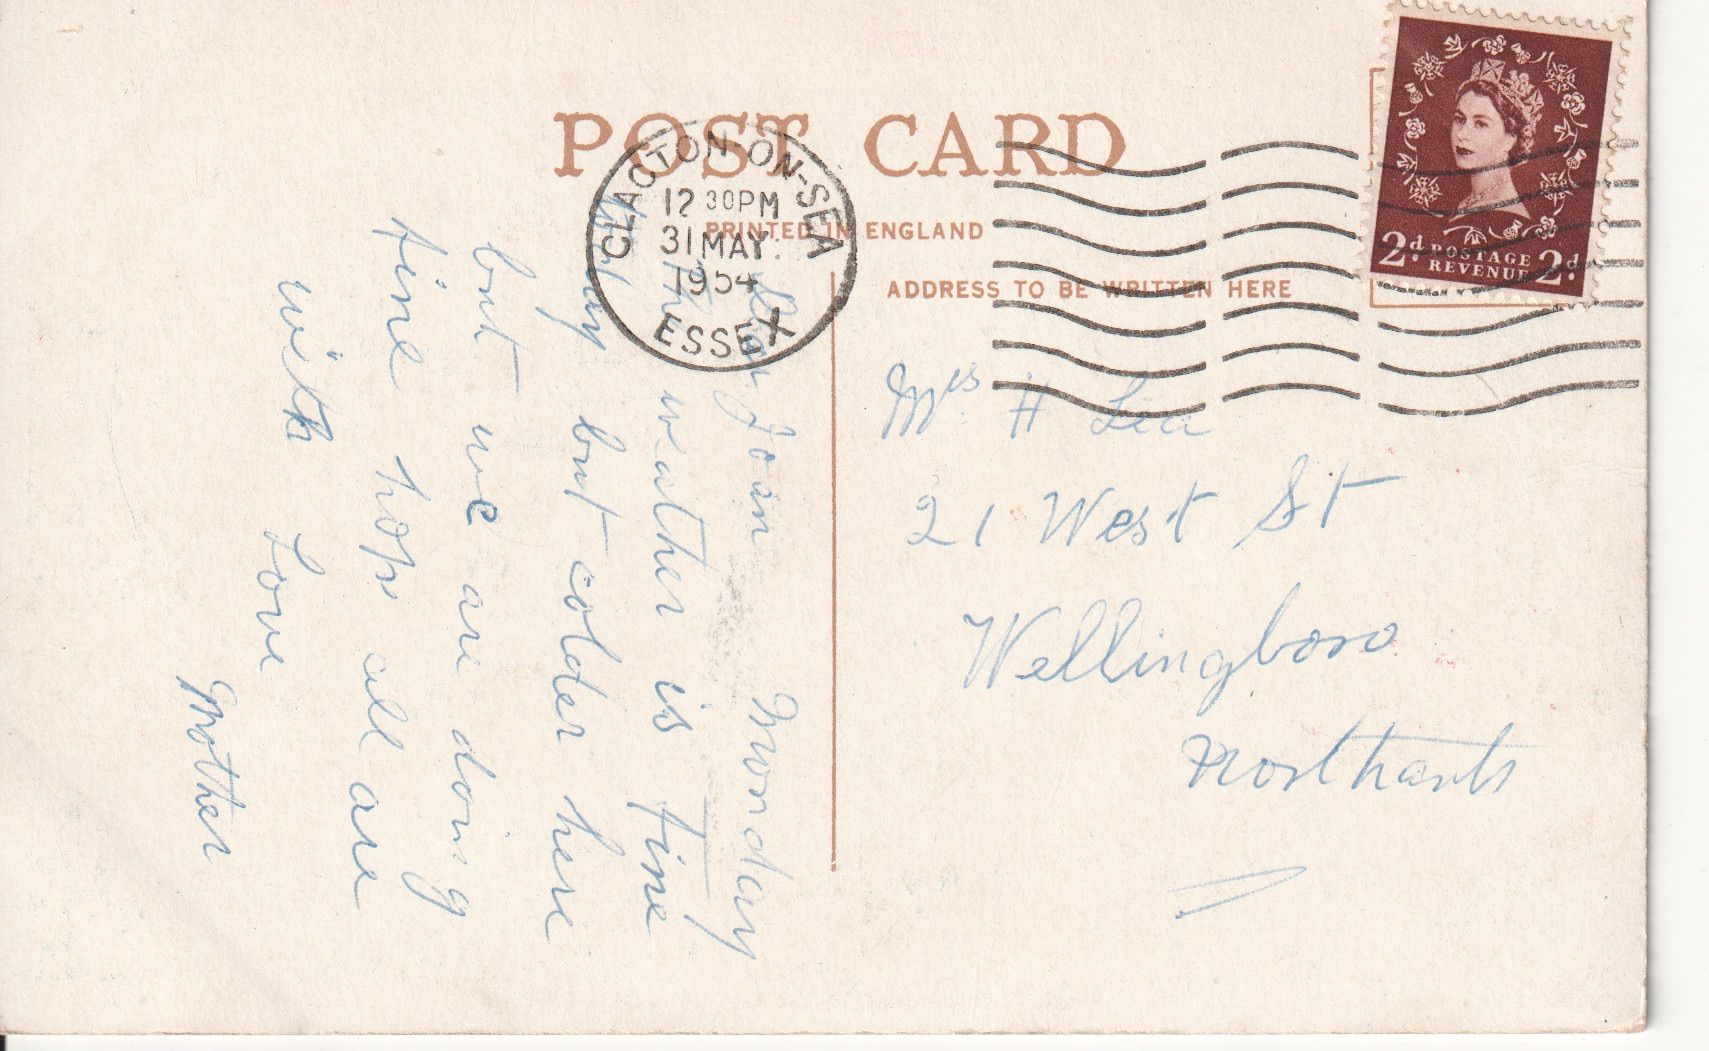 POST CARD
PRINTED IN ENGLAND
ADDRESS TO BE WRITTEN HERE
CLACTON-ON-SEA
12 30PM
31 MAY
1954
ESSEX
2d POSTAGE 2d
REVENUE
Mrs H Lea
21 West St
Wellingboro
Northants
Monday
Dear Joan
The weather is fine
but colder here
but we are doing
fine hope all are
with Love
Mother